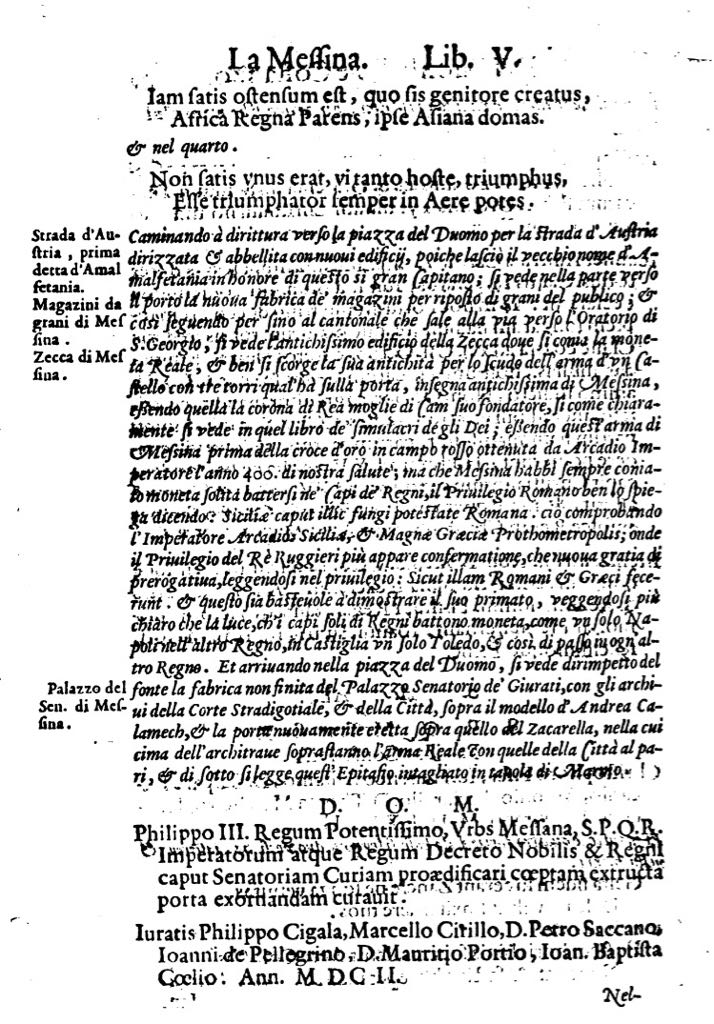 La Meſſina. Lib. V.
Iam ſatis oſtenſum eſt, quo ſis genitore creatus,
Africa Regna Parens, ipſe Aſiana domas.
& nel quarto.
Non ſatis vnus erat, vi tanto hoſte, triumphus,
Eſſe triumphator ſemper in Aere potes.
Strada d'Au-
ſtria, prima
detta d'Amal
fetania.
Magazini da
grani di Meſ
ſina.
Zecca di Meſ
ſina.
Caminando à dirittura verſo la piazza del Duomo per la ſtrada d'Auſtria
dirizzata & abbellita con nuoui edificij, poiche laſciò il vecchio nome d'A-
malfetania in honore di queſto sì gran Capitano; ſi vede nella parte verſo
il porto la nuoua fabrica de' magazini per ripoſto di grani del publico; &
così ſeguendo per ſino al cantonale che ſale alla via verſo l'Oratorio di
S. Georgio, ſi vede l'antichiſſimo edificio della Zecca doue ſi conia la mone-
ta Reale, & ben ſi ſcorge la ſua antichità per lo ſcudo dell'arma d'vn Ca-
ſtello con tre torri qual hà ſulla porta, inſegna antichiſſima di Meſſina,
eſſendo quella la corona di Rea moglie di Cam ſuo fondatore, ſi come chiara-
mente ſi vede in quel libro de' ſimulacri degli Dei; eſſendo queſt'arma di
Meſſina prima della croce d'oro in campo roſſo ottenuta da Arcadio Im-
peratore l'anno 406. di noſtra ſalute; ma che Meſſina habbi ſempre conia-
to moneta ſolita batterſi ne' Capi de' Regni, il Priuilegio Romano ben lo ſpie-
ga dicendo: Siciliæ caput illic fungi poteſtate Romana: ciò comprobando
l'Imperatore Arcadio: Siciliæ, & Magnæ Græciæ Prothometropolis; onde
il Priuilegio del Rè Ruggieri più appare confermatione, che nuoua gratia di
prerogatiua, leggendoſi nel priuilegio: Sicut illam Romani & Græci fece-
runt: & queſto ſia baſteuole à dimoſtrare il ſuo primato, veggendoſi più
chiaro che la luce, ch'i capi ſoli di Regni battono moneta, come vn ſolo Na-
poli nell'altro Regno, in Caſtiglia vn ſolo Toledo, & così di paſſo in ogn'al-
tro Regno. Et arriuando nella piazza del Duomo, ſi vede dirimpetto del
Palazzo del
Sen. di Meſ-
ſina.
fonte la fabrica non finita del Palazzo Senatorio de' Giurati, con gli archi-
ui della Corte Stradigotiale, & della Città, ſopra il modello d'Andrea Ca-
lamech, & la porta nuouamente eretta ſopra quello del Zacarella, nella cui
cima dell'architraue ſopraſtanno l'arma Reale con quelle della Città al pa-
ri, & di ſotto ſi legge queſt'Epitafio intagliato in tauola di Marmo.
D. O. M.
Philippo III. Regum Potentiſſimo, Vrbs Meſſana, S.P.Q.R.
Imperatorum atque Regum Decreto Nobilis & Regni
caput Senatoriam Curiam proædificari cœptam extructa
porta exornandam curauit.
Iuratis Philippo Cigala, Marcello Cirillo, D. Petro Saccano,
Ioanni de Pellegrino, D. Mauritio Portio, Ioan. Baptiſta
Cœlio: Ann. M. D C II.
Nel-